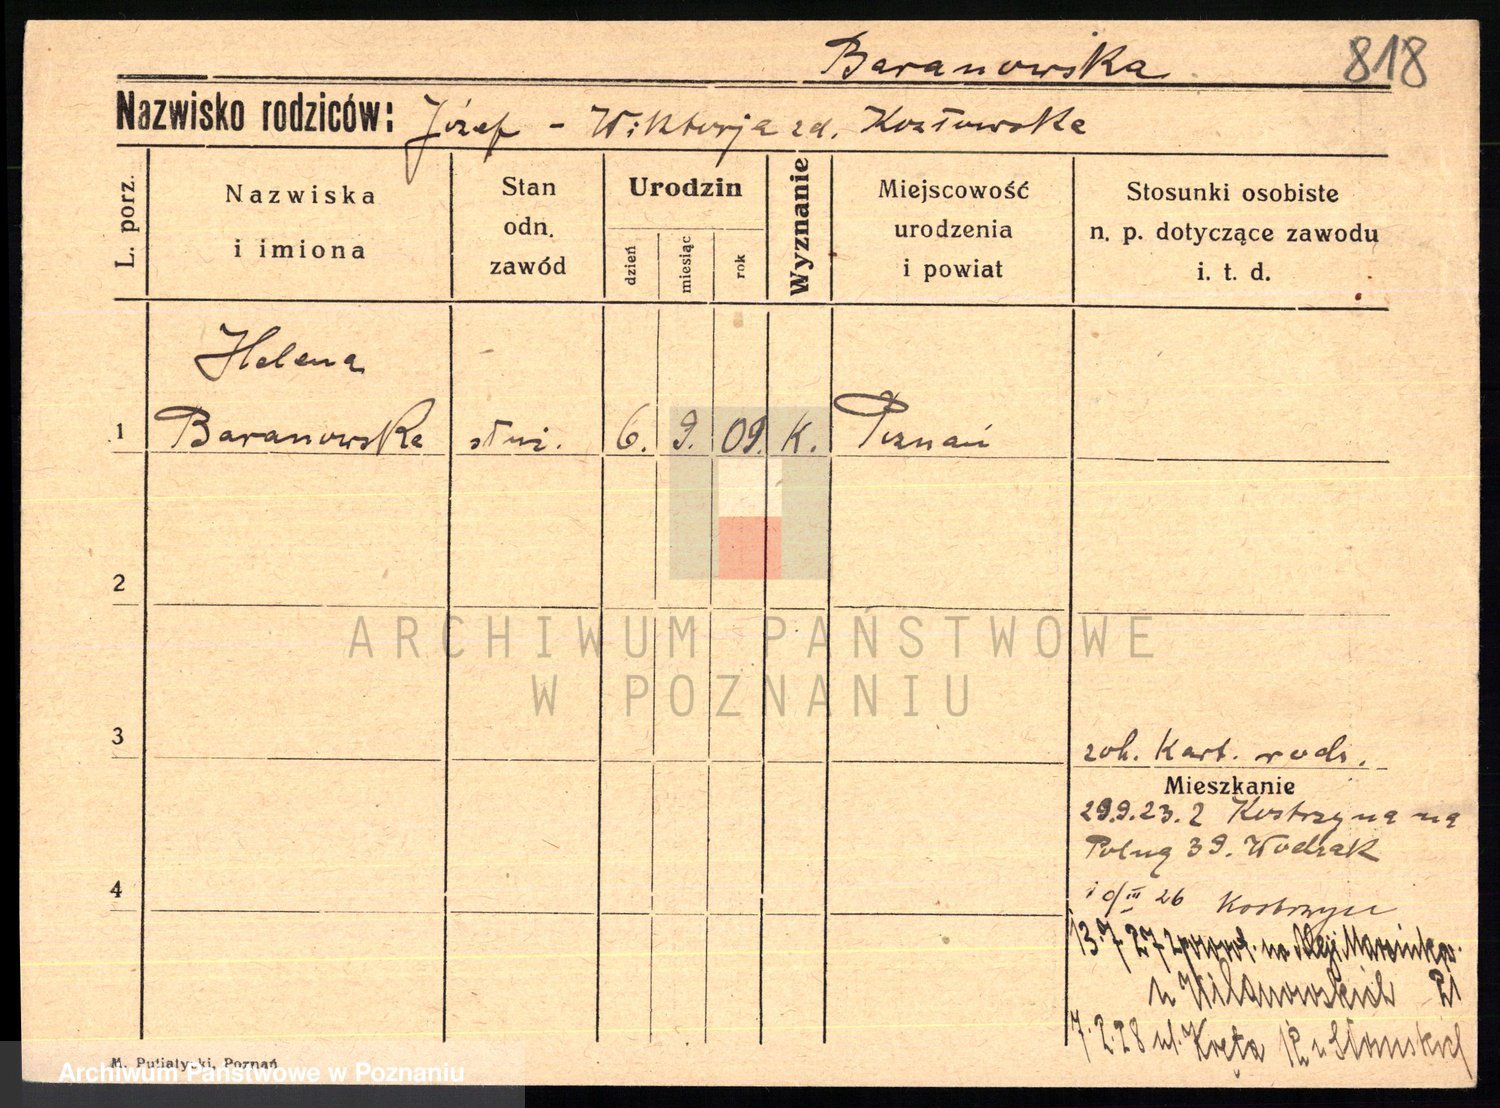 Baranowska
818
Nazwisko rodziców: Józef - Wiktorja zd. Kozłowska
L. porz.
Nazwiska
i imiona
Stan
odn.
zawód
Urodzin
dzień
miesiąc
rok
Wyznanie
Miejscowość
urodzenia
i powiat
Stosunki osobiste
n. p. dotyczące zawodu
i. t. d.
Helena
1 Baranowska służ. 6. 9. 09. K. Poznań
2
ARCHIWUM PAŃSTWOWE
W POZNANIU
3
zob. Kart. rodz.
Mieszkanie
29.9.23. z Kostrzyna na
Polną 39. Wodzak
4
10/III 26 Kostrzyn
13.7.27 na Alej. Marcinkow.
u Wilanowskich 21
7.2.28 ul. Kręta 12
M. Putiatycki, Poznań
Archiwum Państwowe w Poznaniu